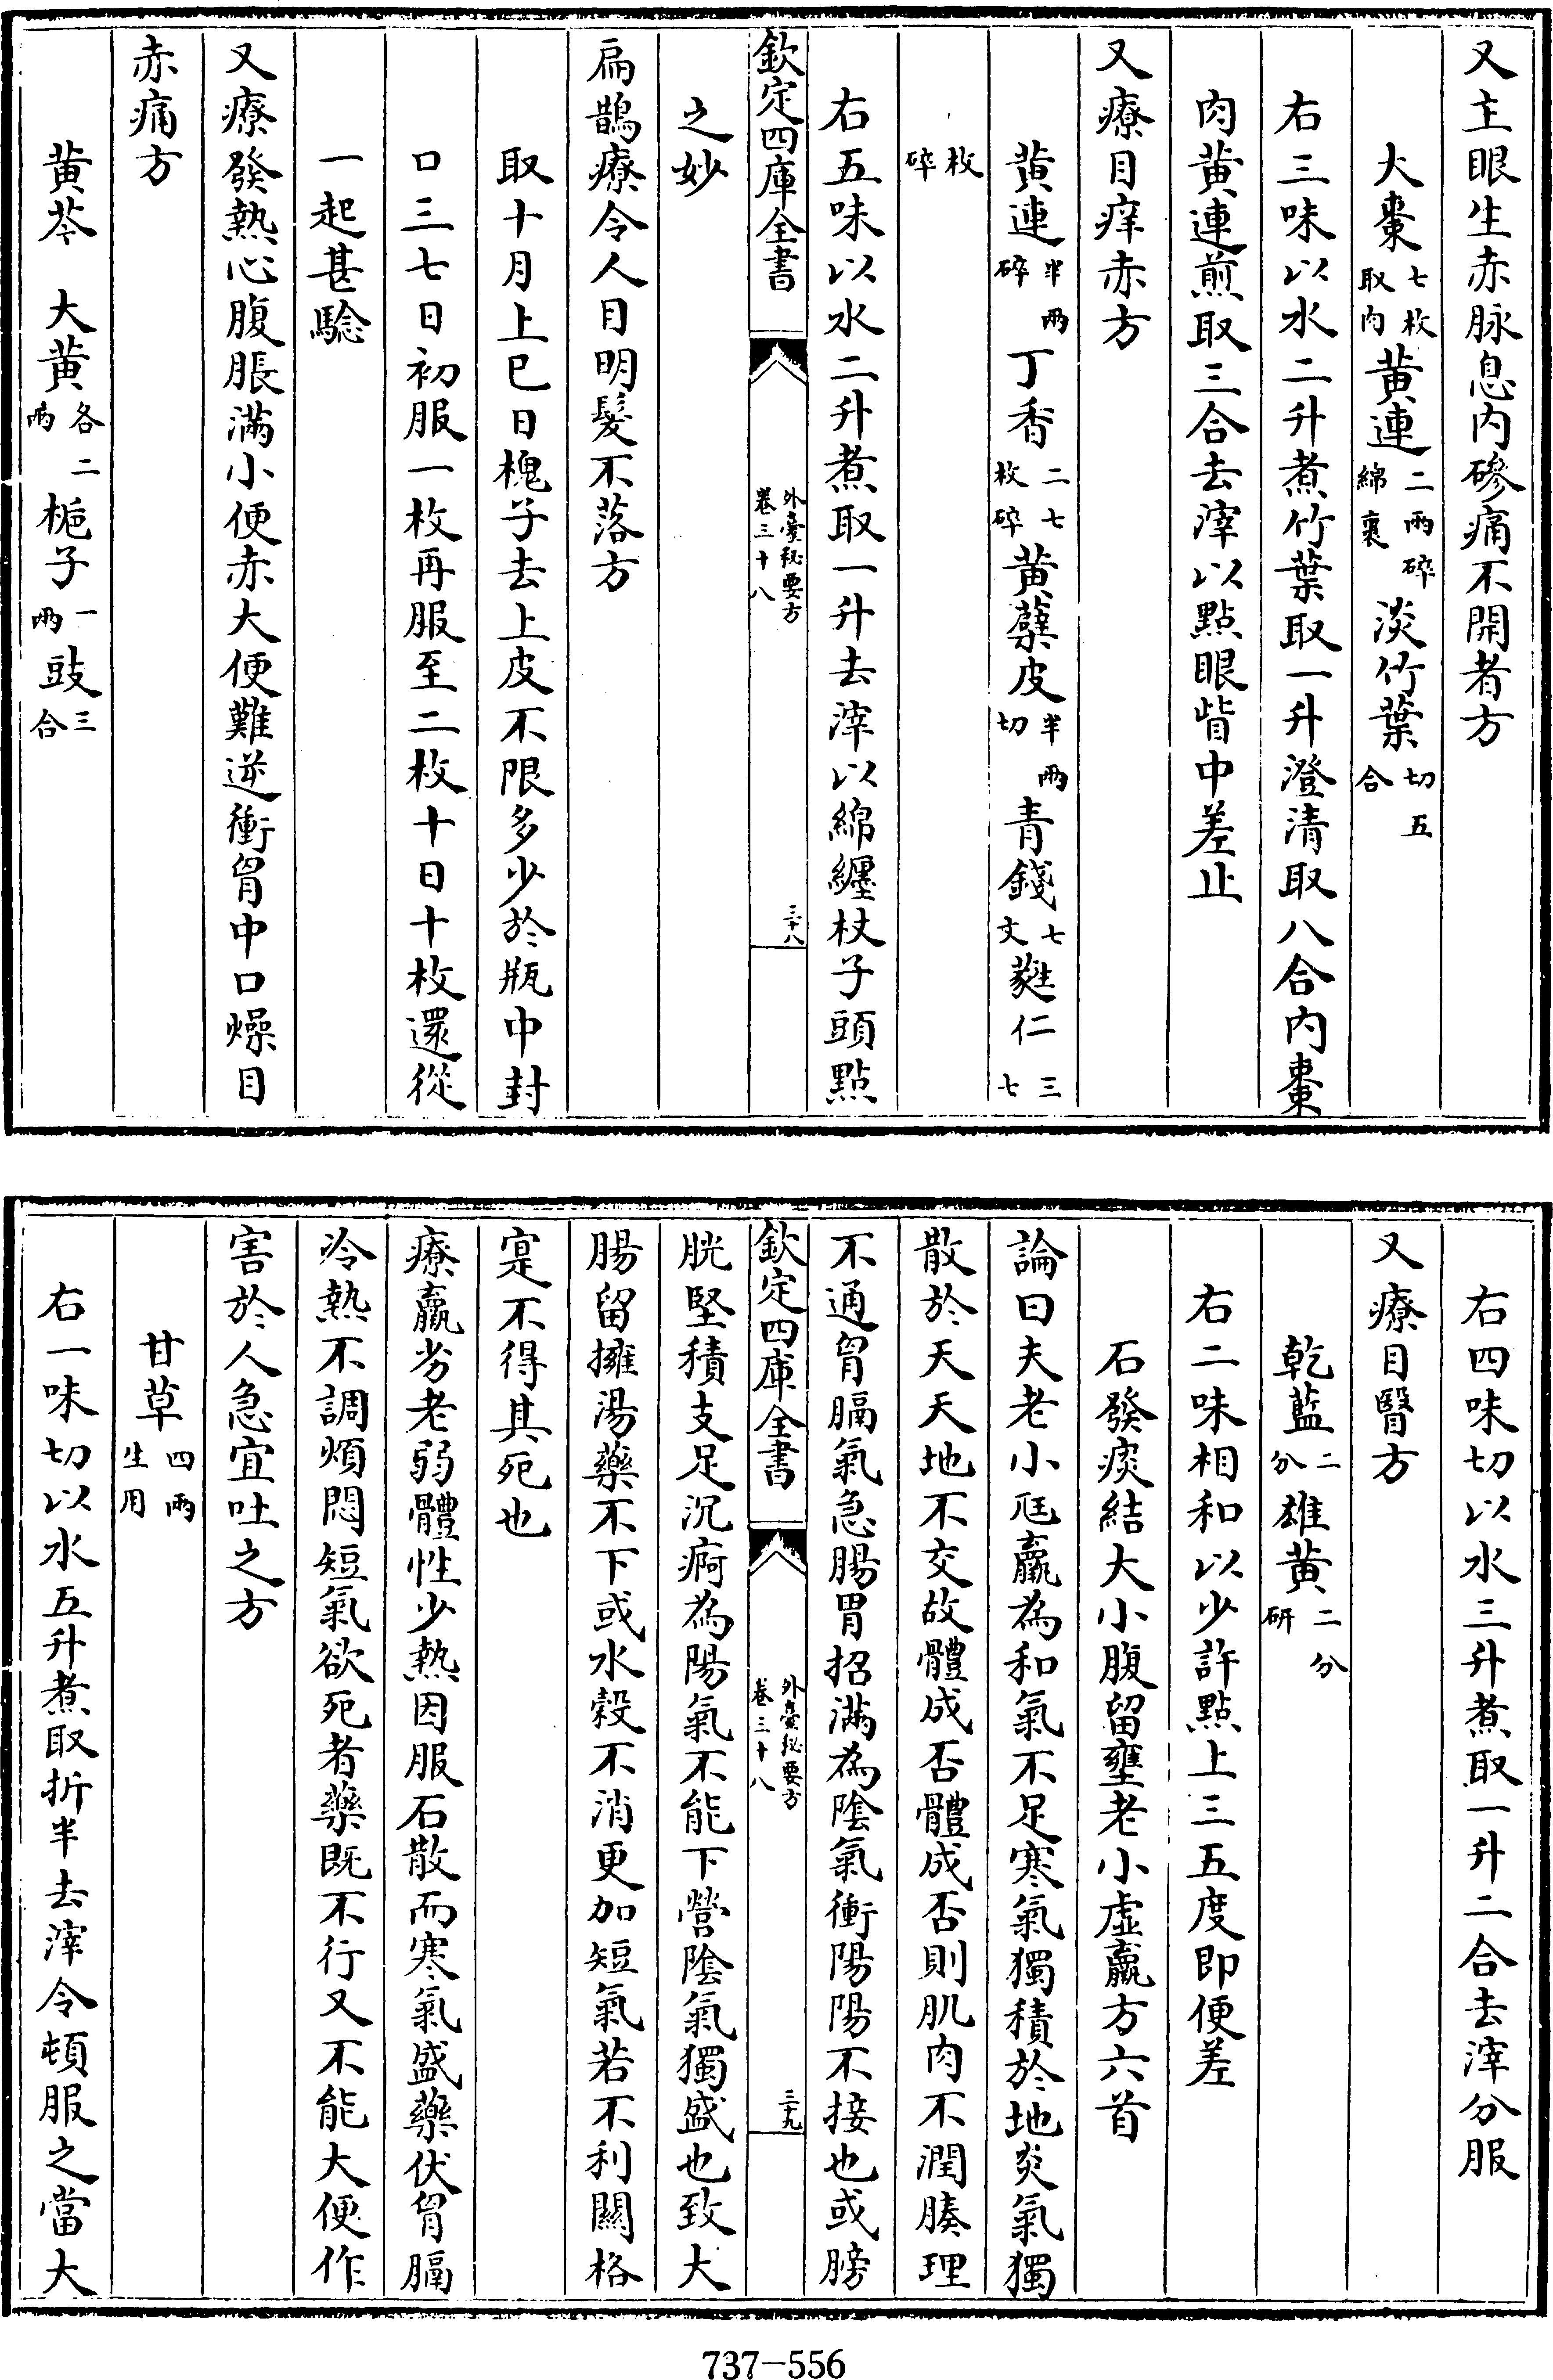 又主眼生赤脉息内磣痛不開者方
大棗七枚取肉黄連二兩碎綿裹淡竹葉切五合
右三味以水二升煮竹葉取一升澄清取八合内棗
肉黄連煎取三合去滓以點眼眥中差止
又療目痒赤方
黄連半兩碎丁香二七枚碎黄蘗皮半兩切青錢七文蕤仁三七
枚碎
右五味以水二升煮取一升去滓以綿纏杖子頭點
欽定四庫全書 外臺秘要方卷三十八 三十八
之妙
扁鵲療令人目明髮不落方
取十月上巳日槐子去上皮不限多少於瓶中封
口三七日初服一枚再服至二枚十日十枚還從
一起甚騐
又療發熱心腹脹滿小便赤大便難逆衝胷中口燥目
赤痛方
黄芩 大黄各二兩梔子一兩豉三合
右四味切以水三升煮取一升二合去滓分服
又療目瞖方
乾藍二分雄黄二分研
右二味相和以少許點上三五度即便差
石發痰結大小腹留壅老小虚羸方六首
論曰夫老小尫羸為和氣不足寒氣獨積於地炎氣獨
散於天天地不交故體成否體成否則肌肉不潤腠理
不通胷膈氣急腸胃招滿為陰氣衝陽陽不接也或膀
欽定四庫全書 外臺秘要方卷三十八 三十九
胱堅積支足沉痾為陽氣不能下營陰氣獨盛也致大
腸留擁湯藥不下或水榖不消更加短氣若不利關格
寔不得其死也
療羸劣老弱體性少熱因服石散而寒氣盛藥伏胷膈
冷熱不調煩悶短氣欲死者藥既不行又不能大便作
害於人急宜吐之方
甘草四兩生用
右一味切以水五升煮取折半去滓令頓服之當大
737-556